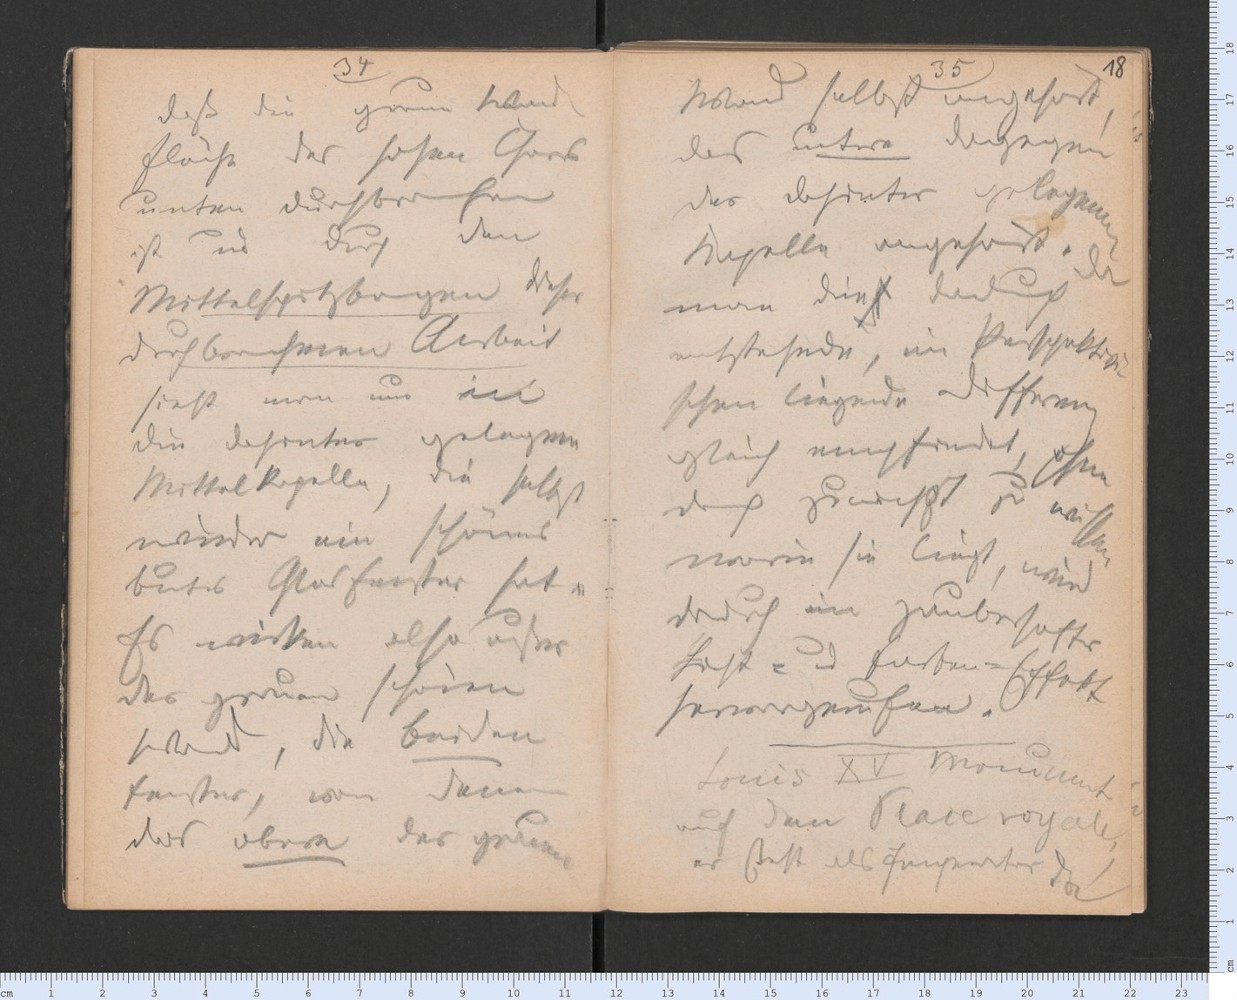 34
daß die graue Wand
fläche des hohen Chors
unten durchbrochen
ist u. durch den
Mittelspitzbogen dieser
durchbrochenen Arbeit
sieht man nun in
die dahinter gelegene
Mittelkapelle, die selbst
wieder ein schönes
buntes Glasfenster hat.
Es wirken also außer
der grauen schönen
Wand, die beiden
Fenster, von denen
das obere der grauen
35
18
Wand selbst angehört,
das untere dagegen
der dahinter gelegenen
Kapelle angehört. Da
man die dadurch
entstehende, im Perspektivi-
schen liegende Differenz
gleich empfindet, ohne
doch zunächst zu wissen
worin sie liegt, wird
dadurch ein zauberhafter
Licht- und Farben-Effekt
hervorgerufen.
Louis XV Monument
auf dem Place royale,
er steht als Imperator da!